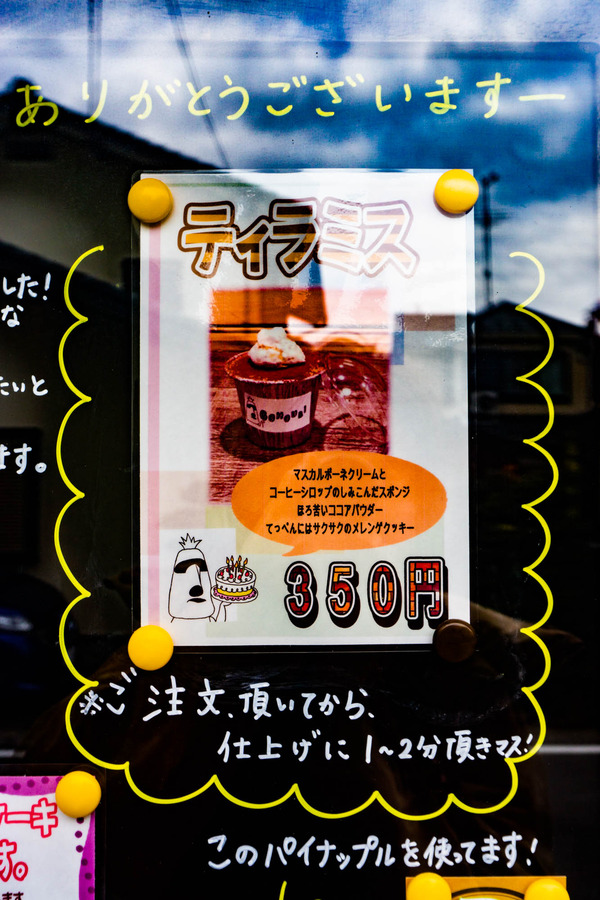 ありがとうございますー
した!
な
たいと
ます。
ティラミス
マスカルポーネクリームと
コーヒーシロップのしみこんだスポンジ
ほろ苦いココアパウダー
てっぺんにはサクサクのメレンゲクッキー
350円
※ご注文、頂いてから、
仕上げに1~2分頂きマス!
ケーキ
す。
ます
このパイナップルを使ってます!